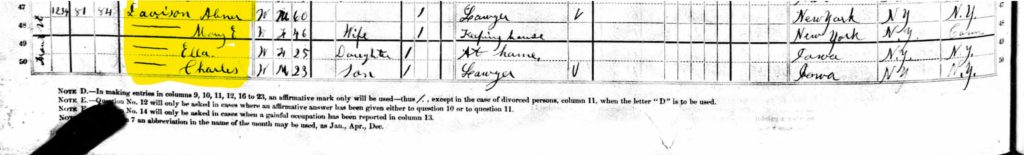 47 1234 81 84 Davison Abner W M 60 1 Lawyer New York N.Y. N.Y.
48 — Mary E W F 46 Wife 1 Keeping house New York N.Y. Conn
49 — Ella W F 25 Daughter 1 At home Iowa N.Y. N.Y.
50 — Charles W M 23 Son 1 Lawyer Iowa N.Y. N.Y.
NOTE D.—In making entries in columns 9, 10, 11, 12, 16 to 23, an affirmative mark only will be used—thus /, except in the case of divorced persons, column 11, when the letter "D" is to be used.
NOTE E.—Question No. 12 will only be asked in cases where an affirmative answer has been given either to question 10 or to question 11.
NOTE No. 14 will only be asked in cases when a gainful occupation has been reported in column 13.
NOT 7 an abbreviation in the name of the month may be used, as Jan., Apr., Dec.